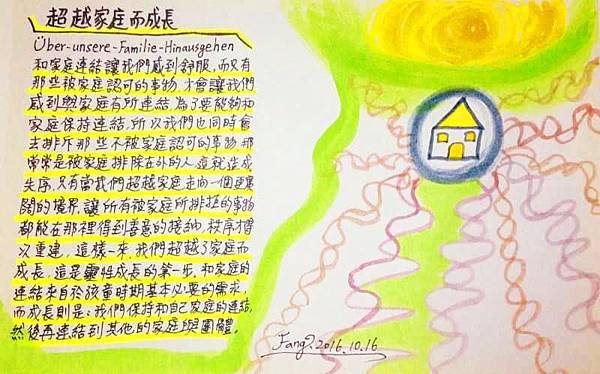 超越家庭而成長
Über-unsere-Familie-Hinausgehen
和家庭連結讓我們感到舒服,而只有
那些被家庭認可的事物,才會讓我們
感到與家庭有所連結,為了要能夠和
家庭保持連結,所以我們也同時會
去排斥那些不被家庭認可的事物,那
常常是被家庭排除在外的人,這就造成
失序,只有當我們超越家庭走向一個更寬
闊的境界,讓所有被家庭所排拒的事物
都能在那裡得到善意的接納,秩序才得
以重建,這樣一來,我們超越了家庭而
成長,這是靈性成長的第一步,和家庭的
連結來自於孩童時期基本必要的需求,
而成長則是:我們保持和自己家庭的連結,
然後再連結到其他的家庭與團體。
Fang.2016.10.16